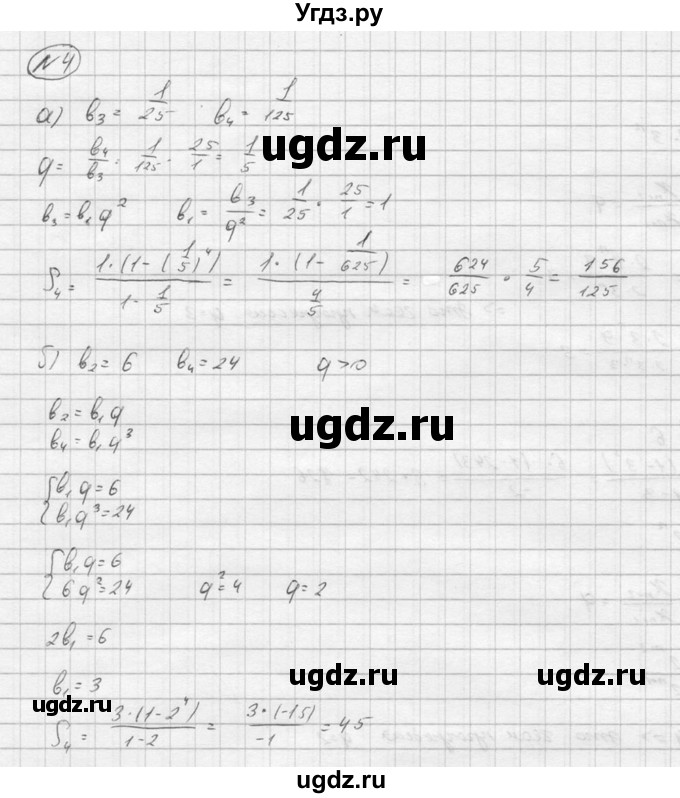 Угдз.ру
№4
а) b₃ = 1/25 b₄ = 1/125
ugdz.ru
q = b₄/b₃ = 1/125 · 25/1 = 1/5
ugdz.ru ugdz.ru
b₃ = b₁q² b₁ = b₃/q² = 1/25 · 25/1 = 1
S₄ = 1·(1-(1/5)⁴)/(1-1/5) = 1·(1-1/625)/(4/5) = 624/625 · 5/4 = 156/125
б) b₂ = 6 b₄ = 24 q > 0
b₂ = b₁q
ugdz.ru
b₄ = b₁q³
{b₁q = 6
{b₁q³ = 24
ugdz.ru ugdz.ru
{b₁q = 6
{6q² = 24 q² = 4 q = 2
2b₁ = 6
ugdz.ru ugdz.ru
b₁ = 3
ugdz.ru
S₄ = 3·(1-2⁴)/(1-2) = 3·(-15)/-1 = 45
ugdz.ru